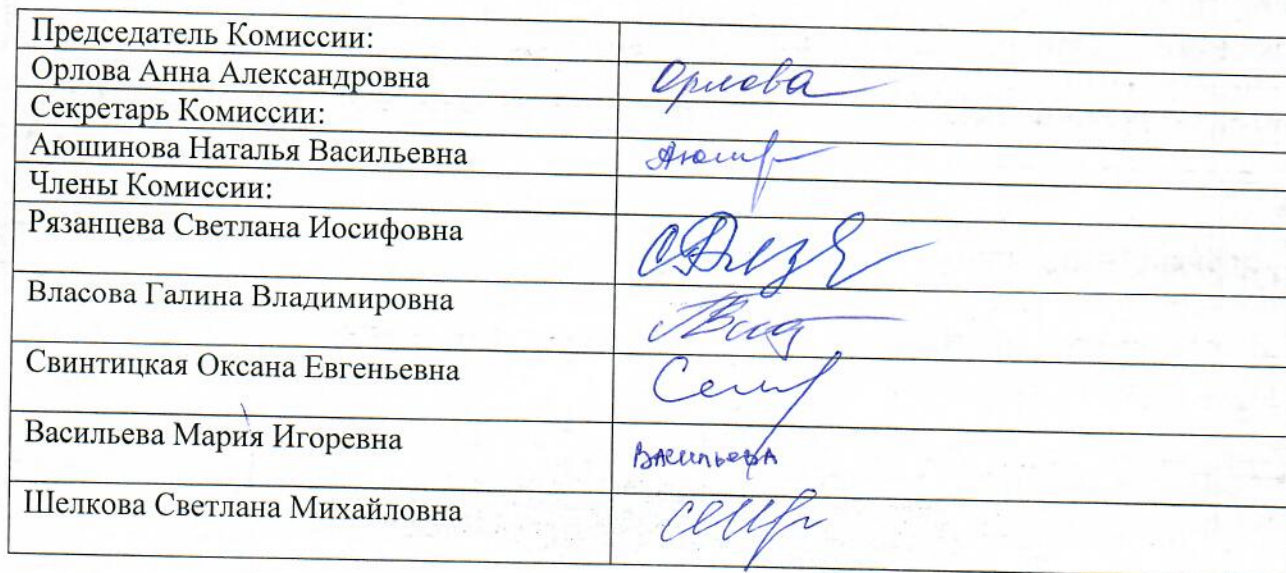 Председатель Комиссии:
Орлова Анна Александровна Орлова
Секретарь Комиссии:
Аюшинова Наталья Васильевна
Члены Комиссии:
Рязанцева Светлана Иосифовна
Власова Галина Владимировна
Свинтицкая Оксана Евгеньевна
Васильева Мария Игоревна Васильева
Шелкова Светлана Михайловна